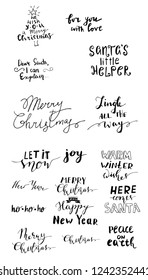 We
wish
you
a merry
Christmas
for you
with love
Dear Santa,
I can
Explain
SANTA'S
little
HELPER
Merry
Christmas
Jingle
all the
way
LET IT
snow
joy
WARM
WINTER
wishes
New Year
MERRY
Christmas
HERE
comes
SANTA
ho-ho-ho
Happy
New Year
Merry
Christmas
Christmas
PEACE
on
earth
shutterstock.com · 1242352442